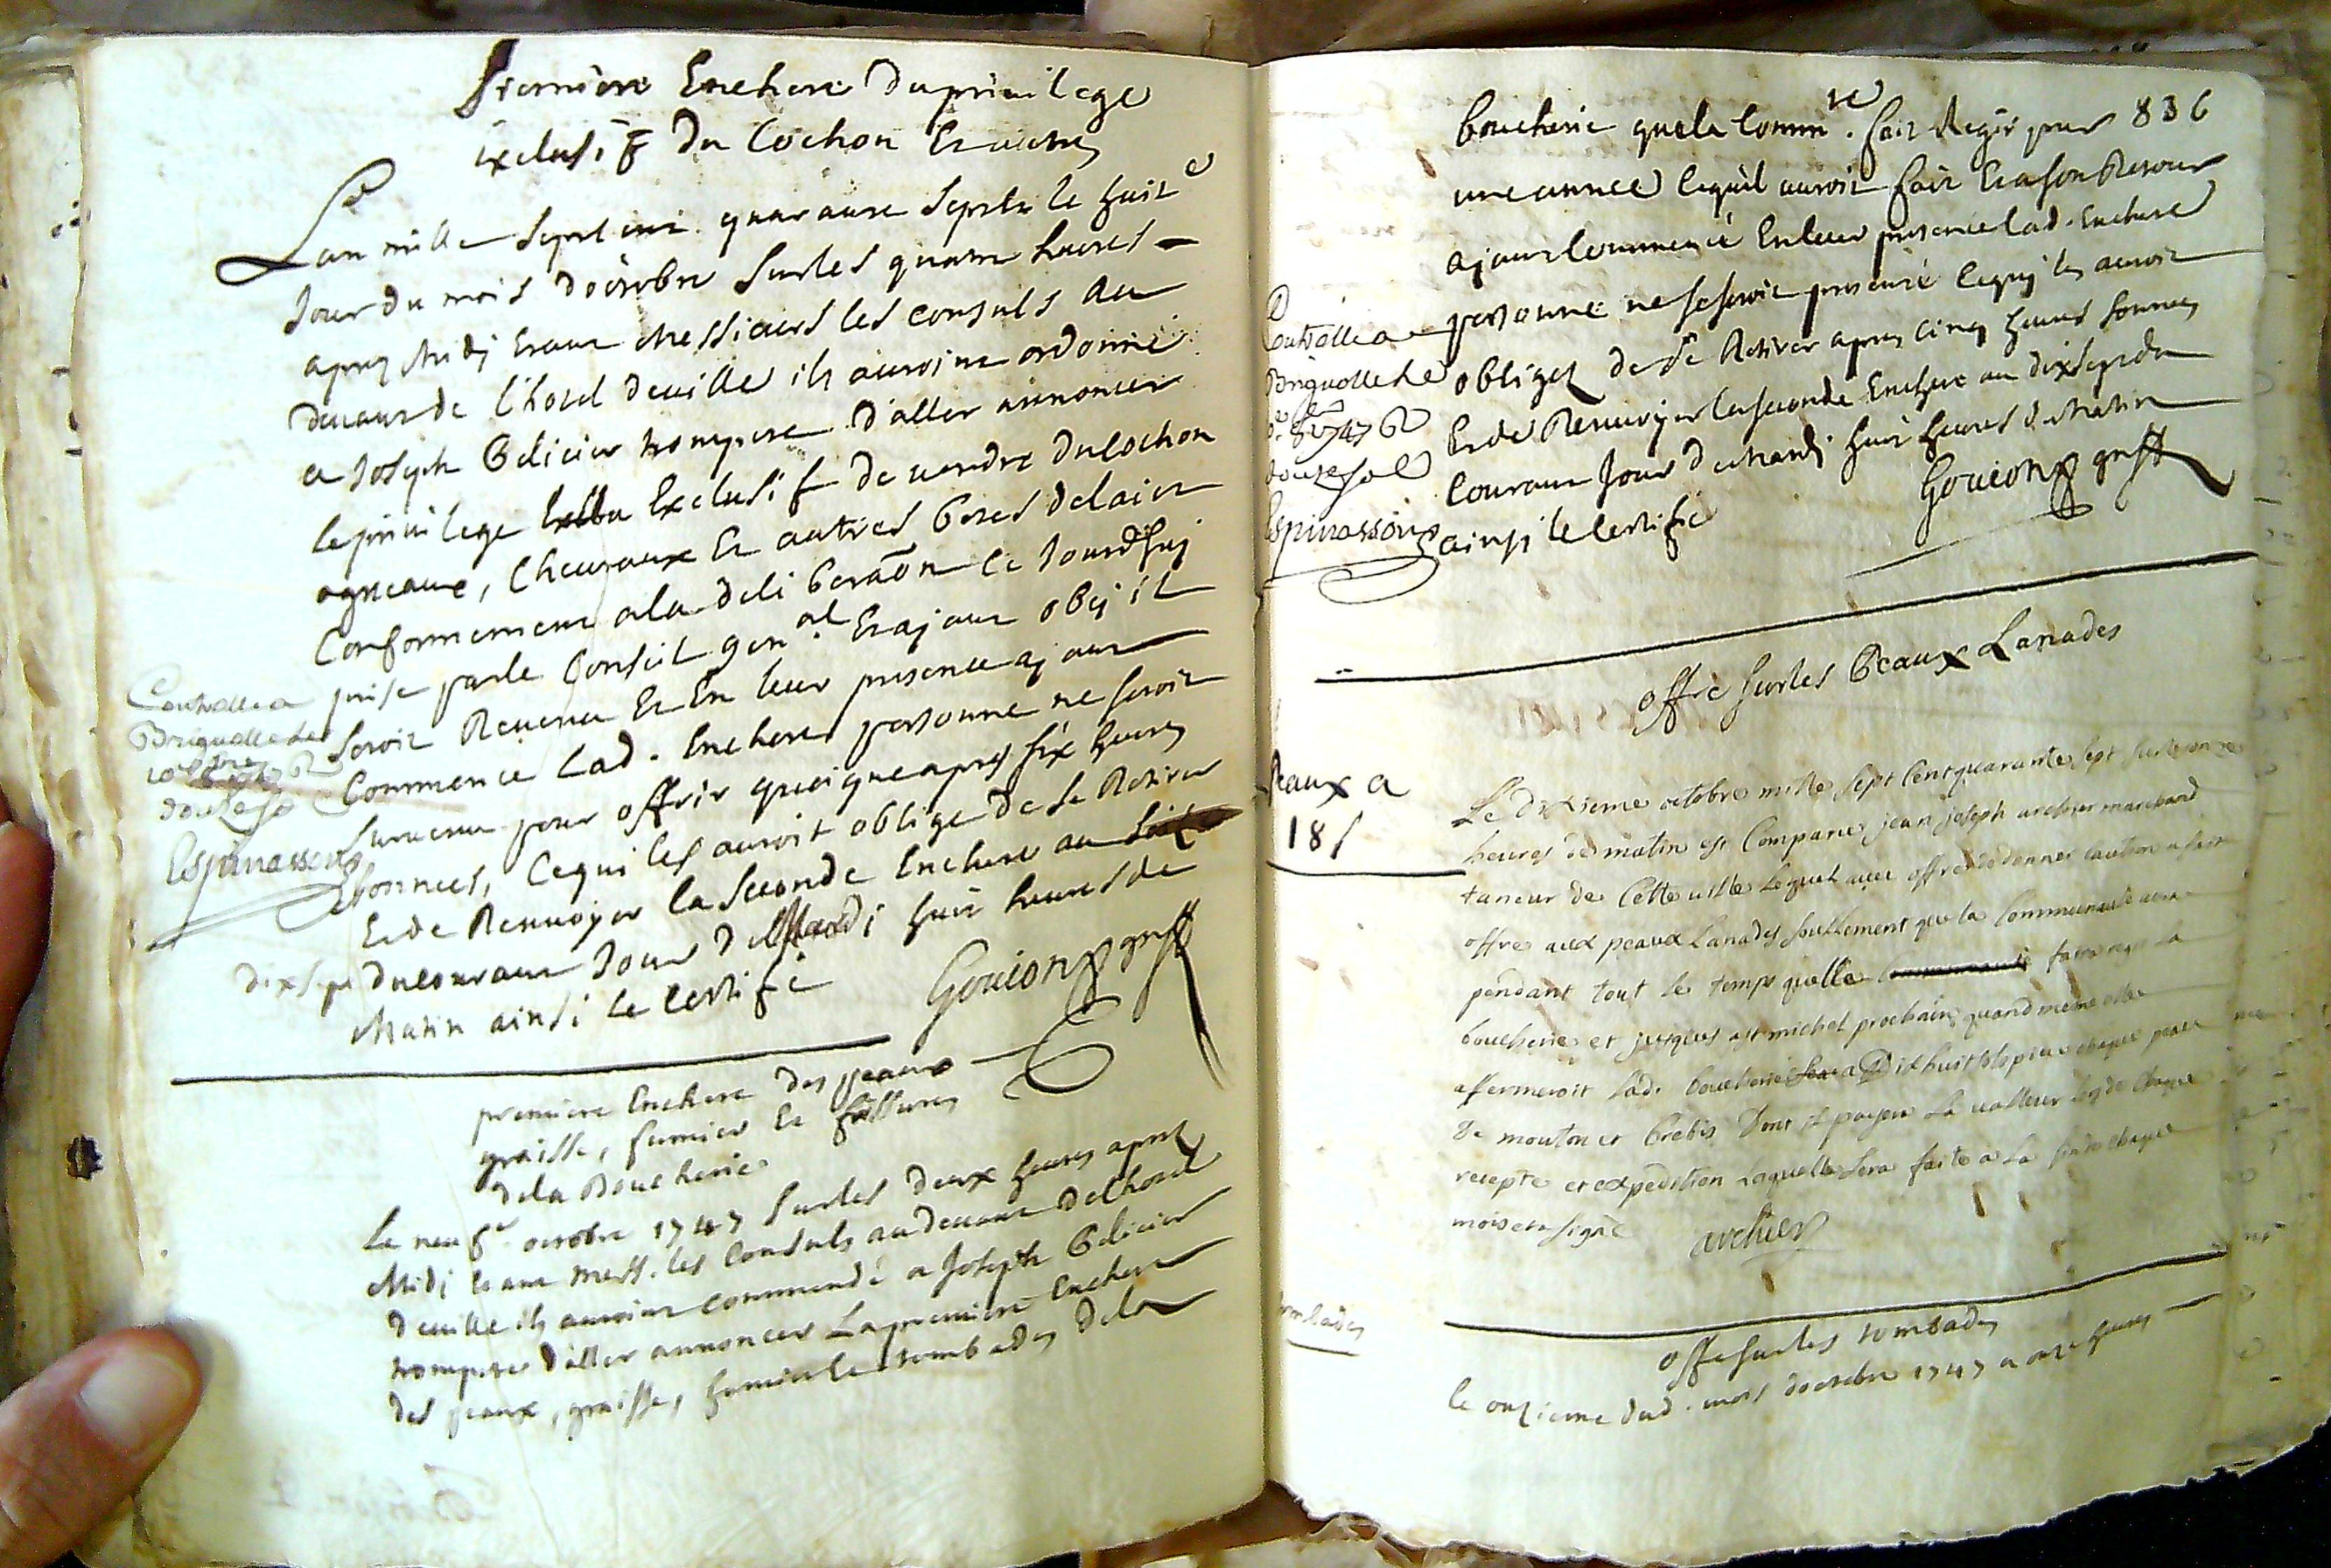 Premiere Enchere du privilege
exclusif du Cochon Et autres
L'an mille sept cent quarante sept & le huit^e
Jour du mois d'octobre Sur les quatre heures
apres Midi Etant Messieurs les consuls Au
devant de l'hotel de ville ils auroint ordonné
a Joseph Belicier trompete d'aller annoncer
le privilege Exclusif de vendre du Cochon
agneaux, Chevraux Et autres betes de lait
Conformement a la deliberaõn Ce Jourdhuj
prise par le Conseil gen.^al Et ajant obej il
Seroit Revenu Et En leur presence ajant
Commencé Lad. Enchere personne ne seroit
survenu pour offrir quoique apres six heures
sonnees, Ce qui les auroit obligé de Se Retirer
Et de Renvoyer la Seconde Enchere au
dix sept du Courant Jour de Mardi huit heures de
Matin ainsi le Certifie
Gouion greff
Controlle a
Brignolle le
douze so
Espinasson
premiere Enchere des peaux
graisse, fumier Et
de la Boucherie
Le neuf^e octobre 1747 Sur les deux heures apres
Midi Etant mess. les Consuls au devant de l'hotel
de ville ils auroint Commendé a Joseph Belicier
trompete d'aller annoncer La premiere Enchere
des peaux, graisse, fumier & tombades de la
836
boucherie que la Comm.^té fait Regir pour
une année Ce quil auroit fait Et a son Retour
ajant Commencé En leur presence lad. Enchere
personne ne se seroit presenté Ce quj les auroit
obligés de se Retirer apres Cinq heures sonnees
Et de Renvoyer la seconde Enchere au dix sept du
Courant Jour de Mardj huit heures de Matin
ainsi le Certifie
Gouion greff
Controlle a
Brignolle le
douze sol
Espinasson
offre sur les Peaux Lanades
Peaux a
18 s
Le dixieme octobre mille sept Cent quarante sept sur les onze
heures de matin est Comparu jean joseph archier marchand
taneur de Cette ville Lequel avec offre de donner caution a fait
offre aux peaux Lanades seullement que la Communauté aura
pendant tout le temps quelle faira regir La
boucherie et jusques a st michel prochain quand meme elle
affermeroit Lad. boucherie a Dix huit sols piece chaque peau
de mouton et brebis Dont il payera La valleur Lors de Chaque
recepte et expedition Laquelle sera faite a La fin de Chaque
mois et a signé
archier
tombades
offre sur les tombades
le onzieme dud. mois doctobre 1747 a onze heures